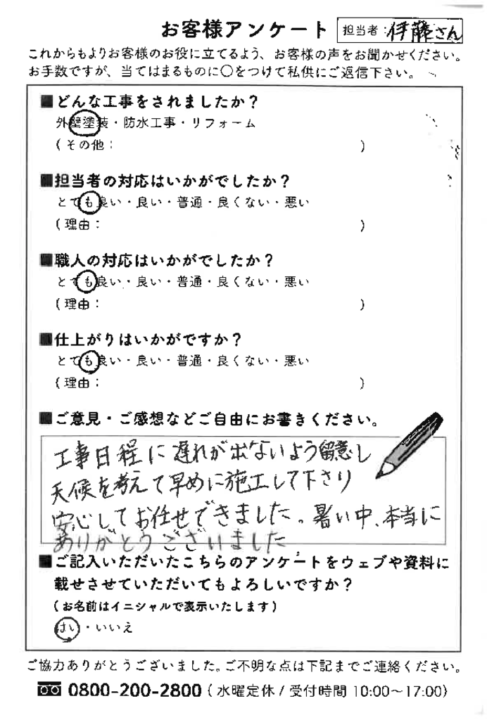 お客様アンケート 担当者: 伊藤さん
これからもよりお客様のお役に立てるよう、お客様の声をお聞かせください。
お手数ですが、当てはまるものに〇をつけて私供にご返信下さい。
■どんな工事をされましたか？
外壁塗装・防水工事・リフォーム
(その他: )
■担当者の対応はいかがでしたか？
とても良い・良い・普通・良くない・悪い
(理由: )
■職人の対応はいかがでしたか？
とても良い・良い・普通・良くない・悪い
(理由: )
■仕上がりはいかがですか？
とても良い・良い・普通・良くない・悪い
(理由: )
■ご意見・ご感想などご自由にお書きください。
工事日程に遅れが出ないよう留意し
天候を考えて早めに施工して下さり
安心してお任せできました。暑い中、本当に
ありがとうございました
■ご記入いただいたこちらのアンケートをウェブや資料に
載せさせていただいてもよろしいですか？
(お名前はイニシャルで表示いたします)
はい・いいえ
ご協力ありがとうございました。ご不明な点は下記までご連絡ください。
0800-200-2800 (水曜定休/受付時間 10:00～17:00)